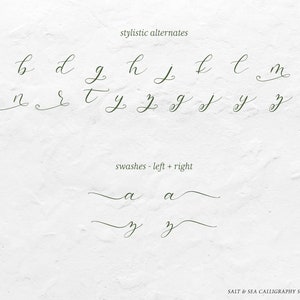 stylistic alternates
b d g h j k l m
n r t y z g j y z
swashes - left + right
a a
z z
SALT & SEA CALLIGRAPHY S